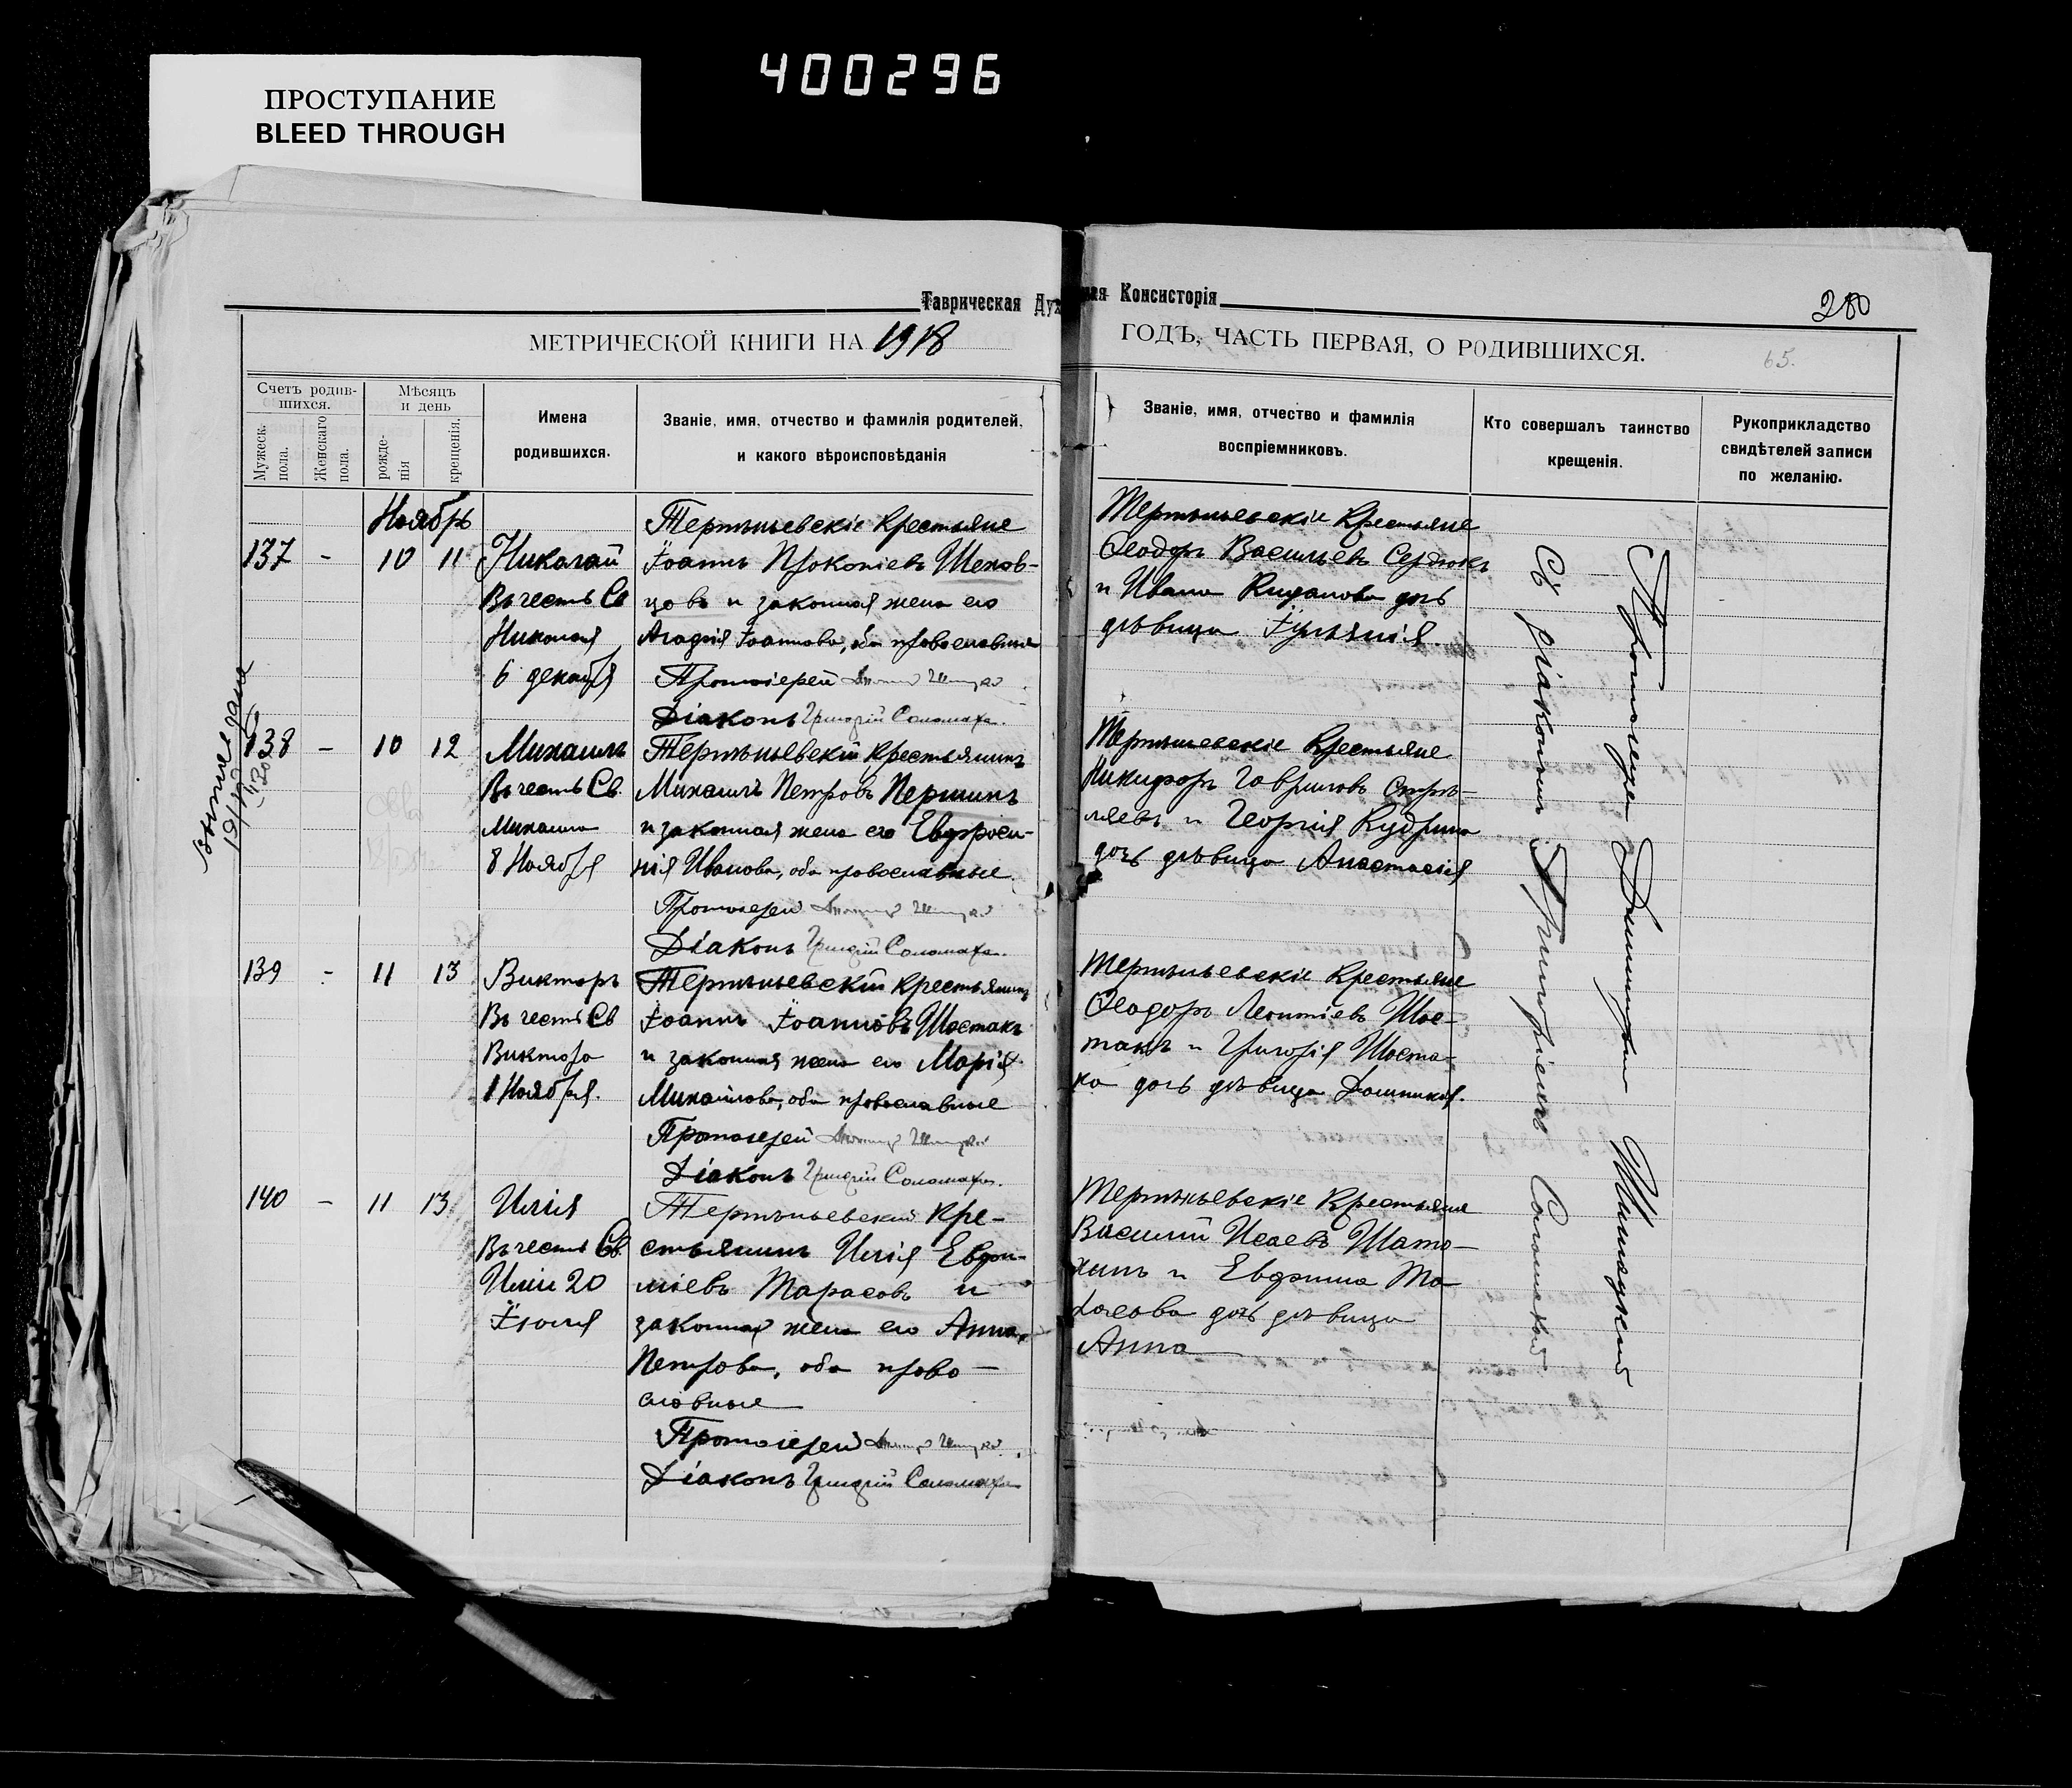 ПРОСТУПАНИЕ
BLEED THROUGH
400296
Таврическая Дух
ная Консисторія
280
МЕТРИЧЕСКОЙ КНИГИ НА 1918
ГОДЪ, ЧАСТЬ ПЕРВАЯ, О РОДИВШИХСЯ.
65.
Счетъ родив-
шихся.
Мужеск.
пола.
Женскаго
пола.
Мѣсяцъ
и день
рожде-
нія
крещенія.
Имена
родившихся.
Званіе, имя, отчество и фамилія родителей,
и какого вѣроисповѣданія
Званіе, имя, отчество и фамилія
воспріемниковъ.
Кто совершалъ таинство
крещенія.
Рукоприкладство
свидѣтелей записи
по желанію.
Ноябрь
137 - 10 11
Николай
Въ честь Св
Николая
6 декабря
Терпѣньевскіе крестьяне
Іоаннъ Прокопіевъ Шехов-
цовъ и законная жена его
Агафія Іоаннова, оба православные
Протоіерей
Діаконъ Григорій Соломаха.
Терпѣньевскіе крестьяне
Ѳеодоръ Васильевъ Сердюкъ
и Ивана дочь
дѣвица Іуліанія
138 - 10 12
Михаилъ
Въ честь Св.
Михаила
8 Ноября
Терпѣньевскій крестьянинъ
Михаилъ Петровъ Першинъ
и законная жена его Евфроси-
нія Иванова, оба православные.
Протоіерей
Діаконъ Григорій Соломаха.
Терпѣньевскіе крестьяне
Никифоръ Гавриловъ
и Георгія Кудрина
дочь дѣвица Анастасія
139 - 11 13
Викторъ
Въ честь Св
Виктора
11 Ноября.
Терпѣньевскій крестьянинъ
Іоаннъ Іоанновъ Шостакъ
и законная жена его Марія
Михайлова, оба православные
Протоіерей
Діаконъ Григорій Соломаха.
Терпѣньевскіе крестьяне
Ѳеодоръ Леонтіевъ Шос-
такъ и Григорія Шоста-
ка дочь дѣвица Домникія.
140 - 11 13
Илія
Въ честь Св.
Иліи 20
Іюля
Терпѣньевскій кре-
стьянинъ Илія Евфи-
міевъ Тарасовъ и
законная жена его Анна
Петрова, оба право-
славные
Протоіерей
Діаконъ Григорій Соломаха
Терпѣньевскіе крестьяне
Василій Исаевъ Шато-
хинъ и Евфима
дочь дѣвица
Анна
Протоіерей Димитрій
Съ діакономъ Григоріемъ Соломахой